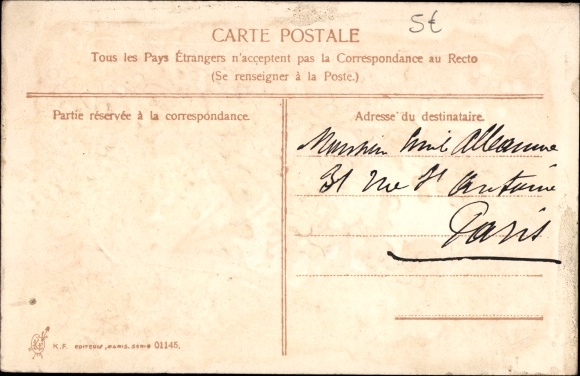 5€
CARTE POSTALE
Tous les Pays Étrangers n'acceptent pas la Correspondance au Recto
(Se renseigner à la Poste.)
Partie réservée à la correspondance.
Adresse du destinataire.
Monsieur Emile
31 rue St Antoine
Paris
K.F. EDITEURS, PARIS, SÉRIE 01145.